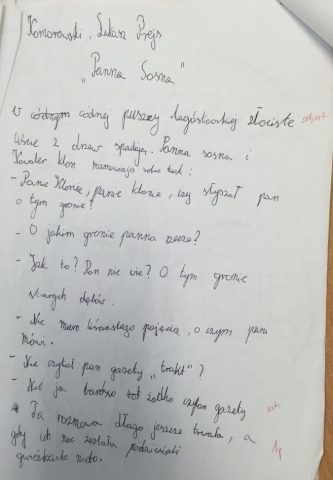 Komorowski, Łukasz Prejs
"Panna Sosna"
W códnym códnej puszczy Augóstowskiej złociste
liście z drzew spadają. Panna sosna i
Kawaler klon rozmawiają sobie tak:
- Panie Klonie, panie klonie, czy słyszał pan
o tym gronie?
- O jakim gronie panna
- Jak to? Pan nie wie? O tym gronie
starych dębów.
- Nie mam liściastego pojęcia, o czym pani
mówi.
- Nie czytał pan gazety "trakt"?
- Nie ja bardzo żatko czytam gazety
Ta rozmowa długo jeszcze trwała, a
gdy ich noc zastała podziwiali
gwieździste niebo.
ort
1p